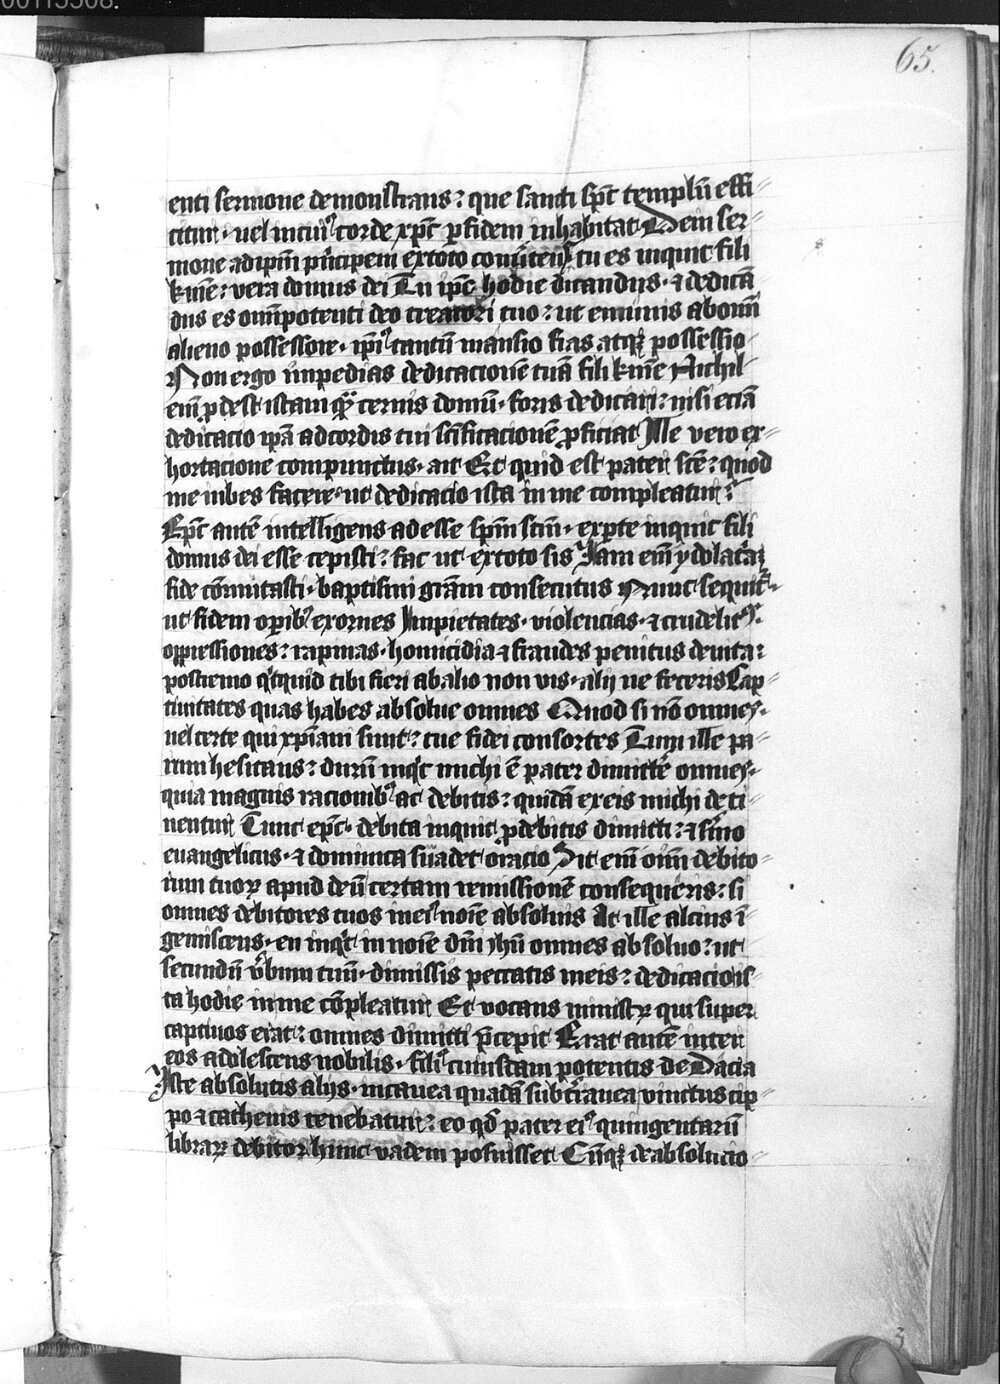 00115508.
65.
enti sermone demonstrans: que sancti spc templū effi
citur. uel in cuiꝰ corde xpc p fidem inhabitat Dein ser
mone ad ipm pͥncipem ex toto conūtens tu es inquit fili
kne: vera domus dei Tu ipe hodie dicandus. ⁊ dedicā
dus es omīpotenti deo creatori tuo: ut eminus ab omī
alieno possessore. ipiꝰ tantū mansio fias atqꝫ possessio
Non ergo impedias dedicacionē tuā fili kne Nichil
eni ꝓdest istam q̄ cernis domū. foris dedicari: nisi eciā
dedicacio ipā ad cordis tui scīficacionē ꝓficiat Ille vero ex
hortacione compunctus. ait Et quid est pater scē: quod
me iubes facere. ut dedicacio ista in me compleatur:
Epc autē intelligens adesse spm scm. expte inquit fili
domus dei esse cepisti: fac ut ex toto sis Iam eni ydolatͣꝫ
fide cōmutasti. baptismi grām consecutus Nunc sequitͬ
ut fidem opibꝰ exornes Impietates. violencias. ⁊ crudelitꝭ.
oppressiones: rapinas. homicidia ⁊ fraudes penitus deuita:
postremo qͥcquid tibi fieri ab alio non vis. alij ne feceris Cap
tiuitates quas habes absolue omnes Quod si nō omnes.
uel certe qui xpiani sunt: tue fidei consortes Tum ille pa
rum hesitans: durū inqͥt michi ē pater dimittē omnes.
quia magnis racionibꝰ ac debitis: quidā ex eis michi deti
nentur Tunc epc. debita inquit ꝓ debitis dimitti: ⁊ sͬmo
euangelicus. ⁊ dominica suadet oracio Sit eni om̄ debito
rum tuoꝝ apud deū certam remissionē consequeris: si
omnes debitores tuos in eiꝰ noīe absoluis At ille alcius ī
gemiscens. en inqͥt in noīe dni ihū omnes absoluo: ut
secundū v̄bum tuū. dimissis peccatis meis: dedicacio is
ta hodie in me cōpleatur Et vocans ministꝝ qui super
captiuos erat: omnes dimitti p̄cepit Erat autē inter
eos adolescens nobilis. filiꝰ cuiusdam potentis de Dacia
Iste absolutis alijs. in cauea quadā subtͣ cauea vinctus cip
po ⁊ cathenis tenebatur: eo qd pater eiꝰ quingentarū
libraꝝ debitor hunc vadem posuisset Cūqꝫ de absolucio
3